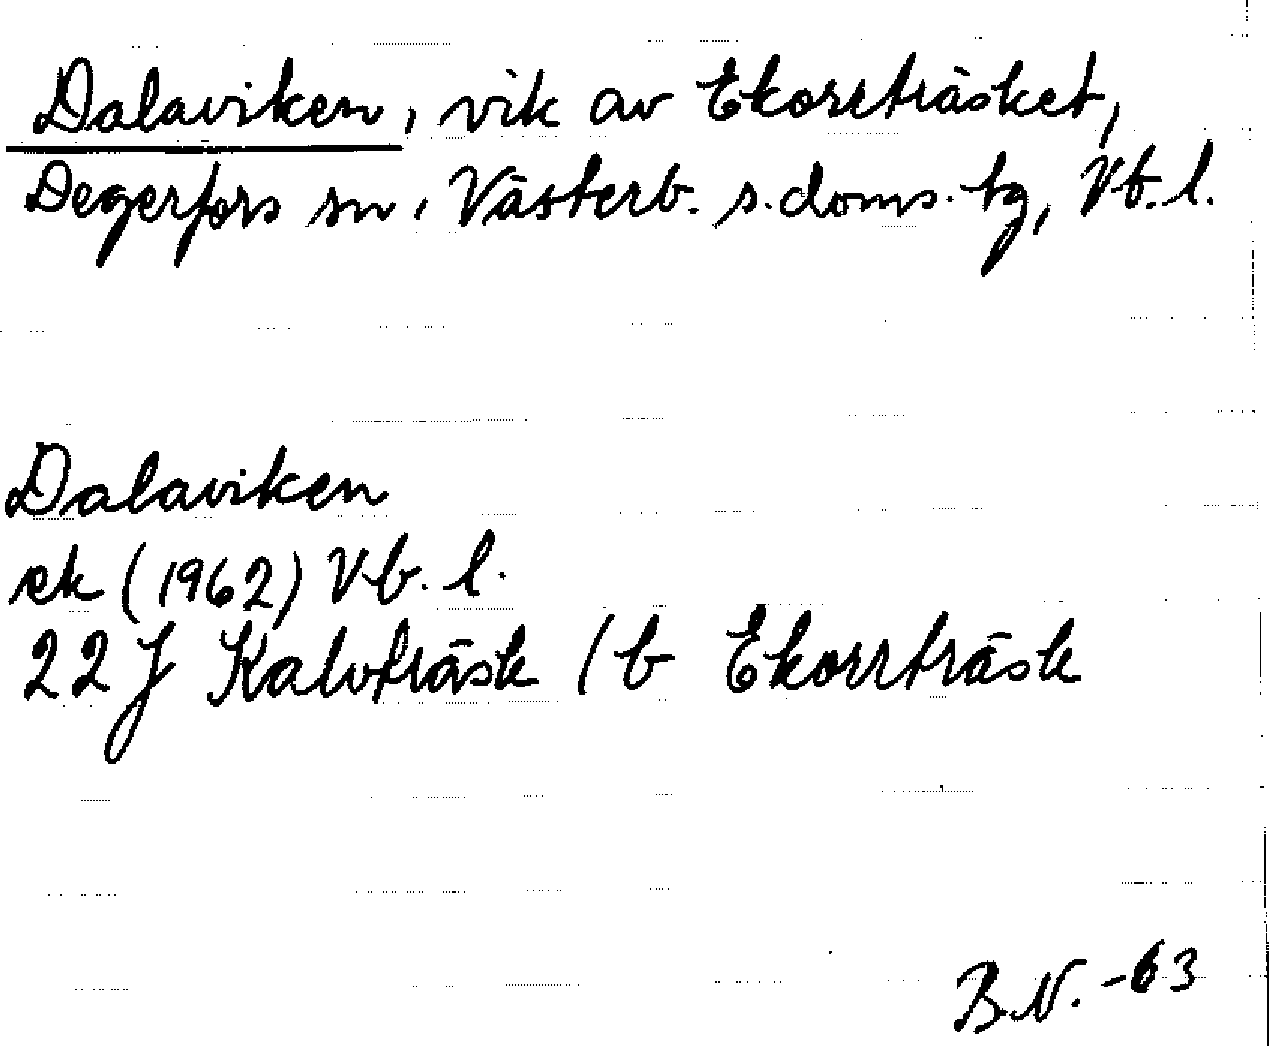 Dalaviken, vik av Ekorrträsket,
Degerfors sn, Västerb. s. doms. tg, Vb. l.
Dalaviken
ek (1962) Vb. l.
22 J Kalvträsk / b Ekorrträsk
B.N. -63